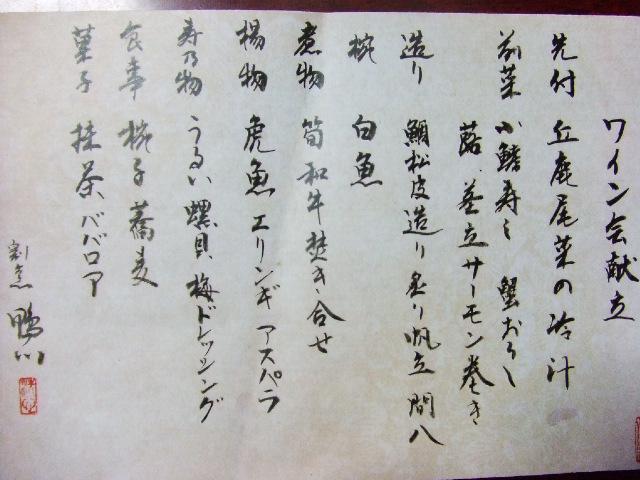 ワイン会献立
先付 丘鹿尾菜の冷汁
前菜 小鰭寿し 蟹おろし
蕗・茎立サーモン巻き
造り 鯛松皮造り 炙り帆立 間八
椀 白魚
煮物 筍和牛焚き合せ
揚物 虎魚 エリンギ アスパラ
寿乃物 うるい 螺貝 梅ドレッシング
食事 椀子蕎麦
菓子 抹茶ババロア
割烹 鴨川